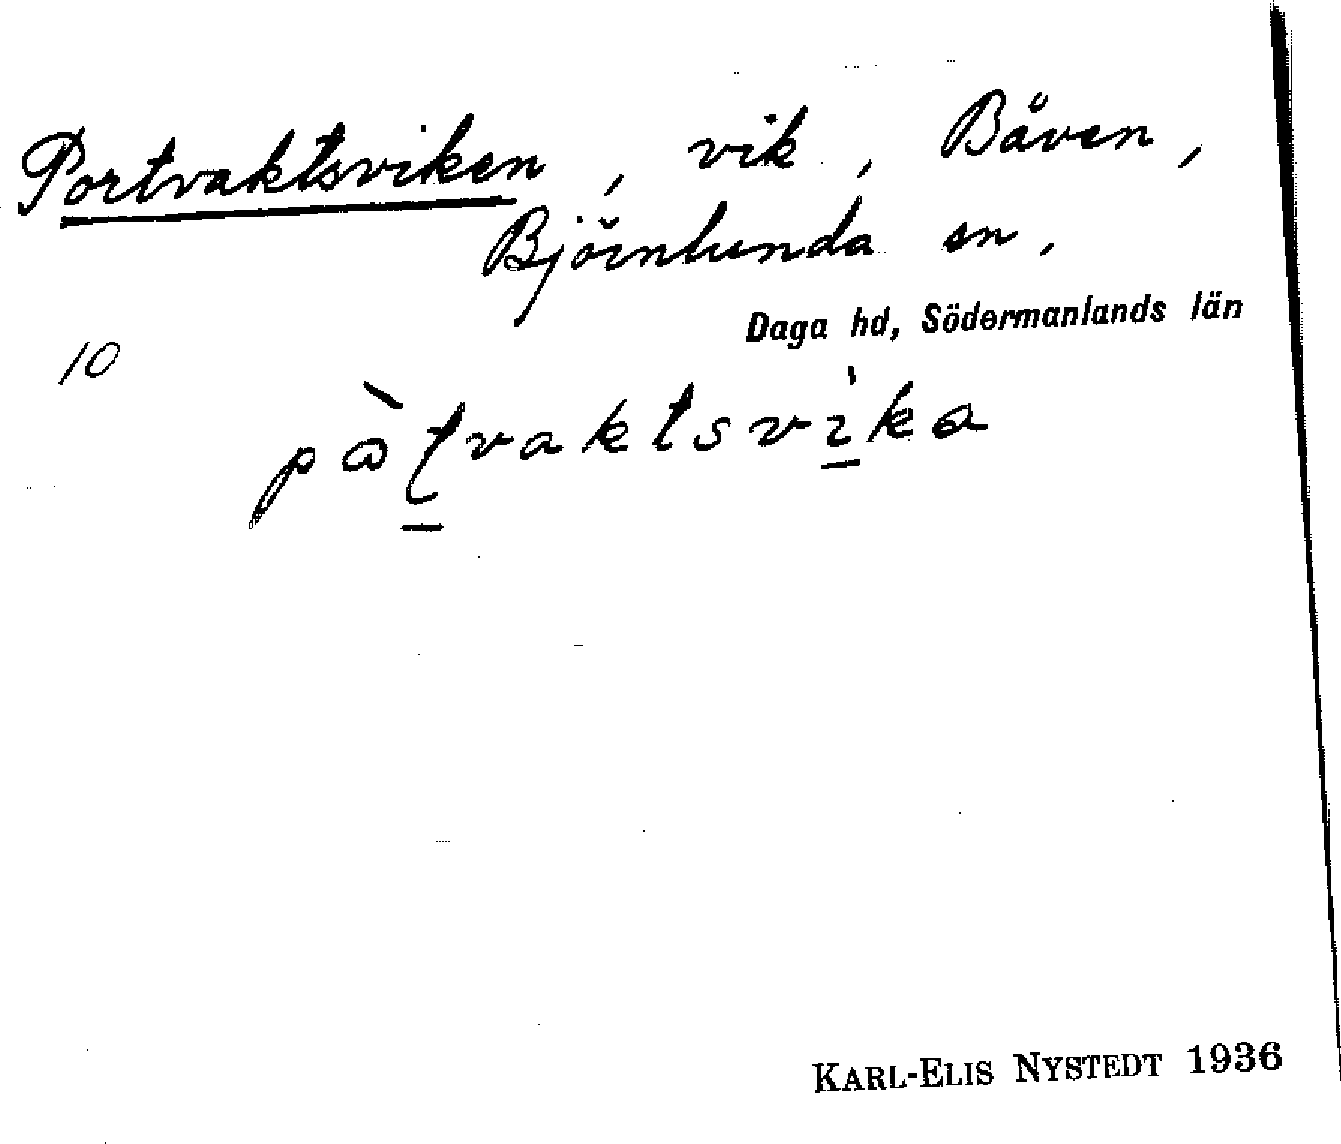 Portvaktsviken, vik, Båven,
Björnlunda sn,
Daga hd, Södermanlands län
10
pɷ̀ʈvaktsvi̱̍ka
KARL-ELIS NYSTEDT 1936